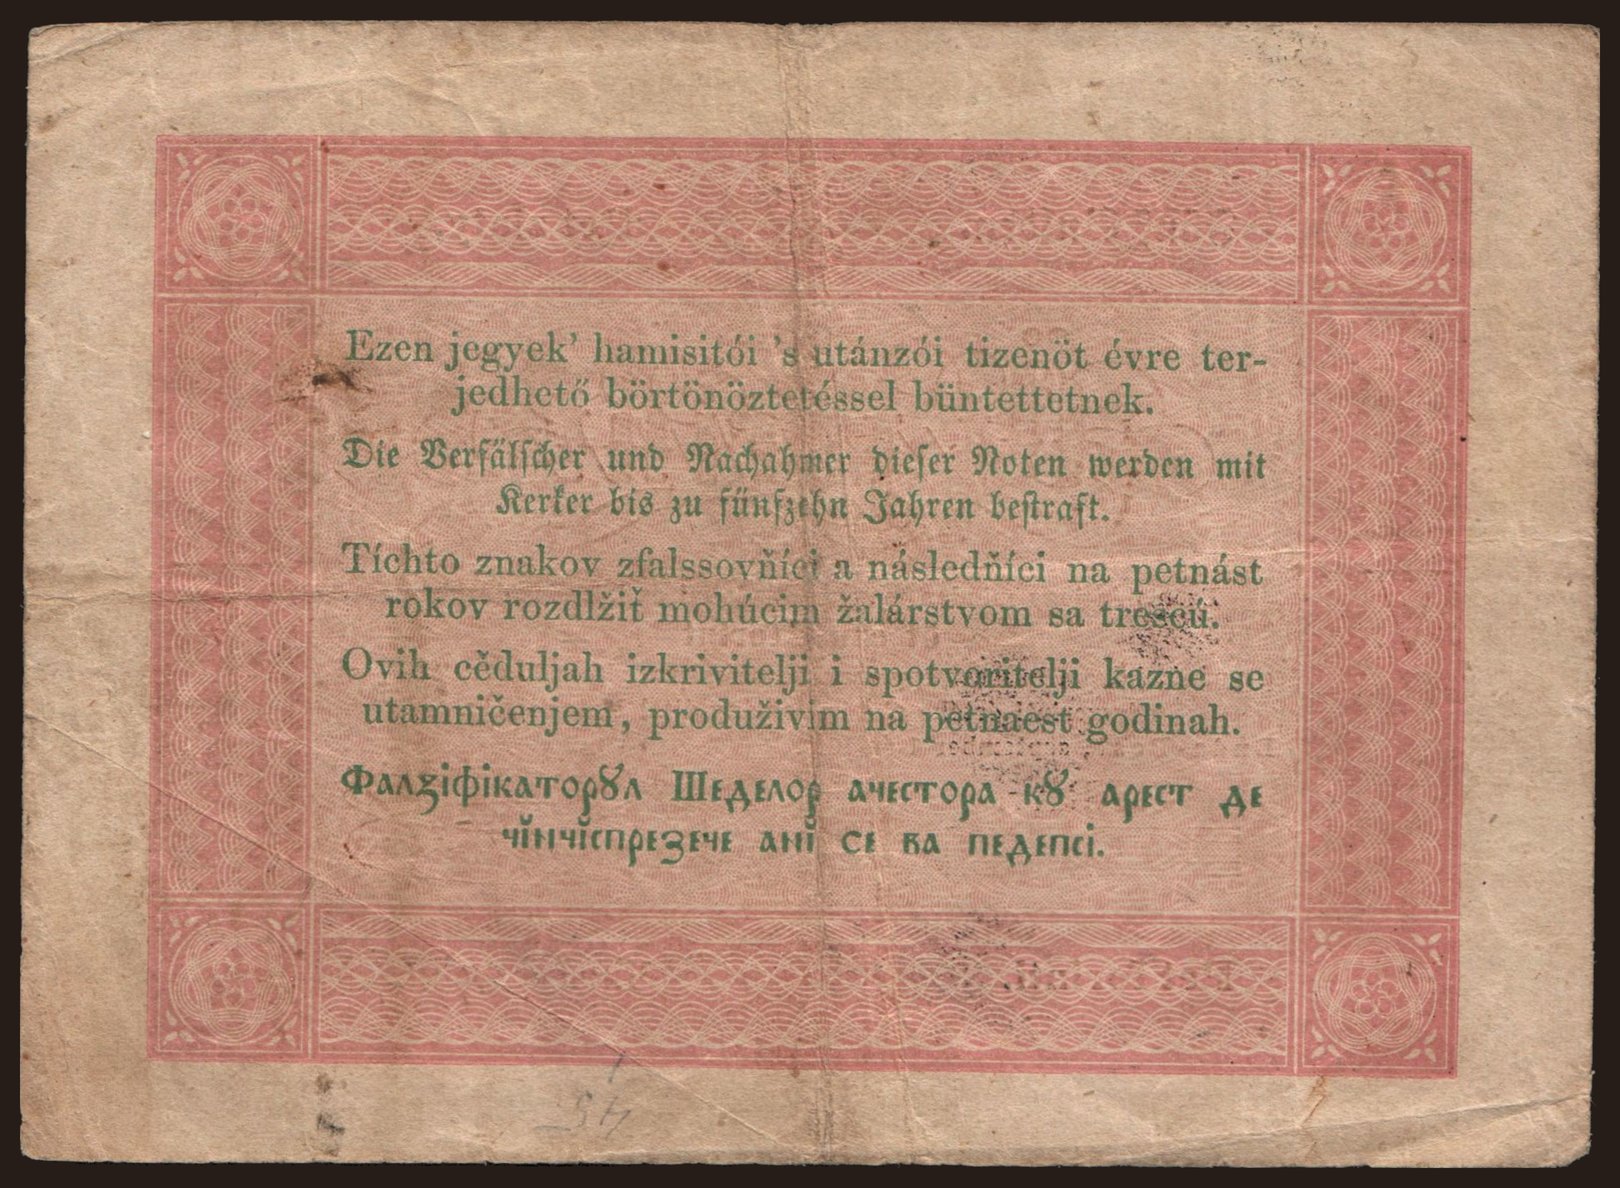 Ezen jegyek’ hamisitói ’s utánzói tizenöt évre ter-
jedhető börtönöztetéssel büntettetnek.
Die Verfälscher und Nachahmer dieser Noten werden mit
Kerker bis zu fünfzehn Jahren bestraft.
Tíchto znakov zfalssovňíci a následňíci na petnást
rokov rozdlžiť mohúcim žalárstvom sa trescú.
Ovih cěduljah izkrivitelji i spotvoritelji kazne se
utamničenjem, produživim na petnaest godinah.
Фалзіфікаторꙋл Шеделор ачестора кꙋ арест де
чĭнчĭспрезече анĭ се ва педепсі.
45